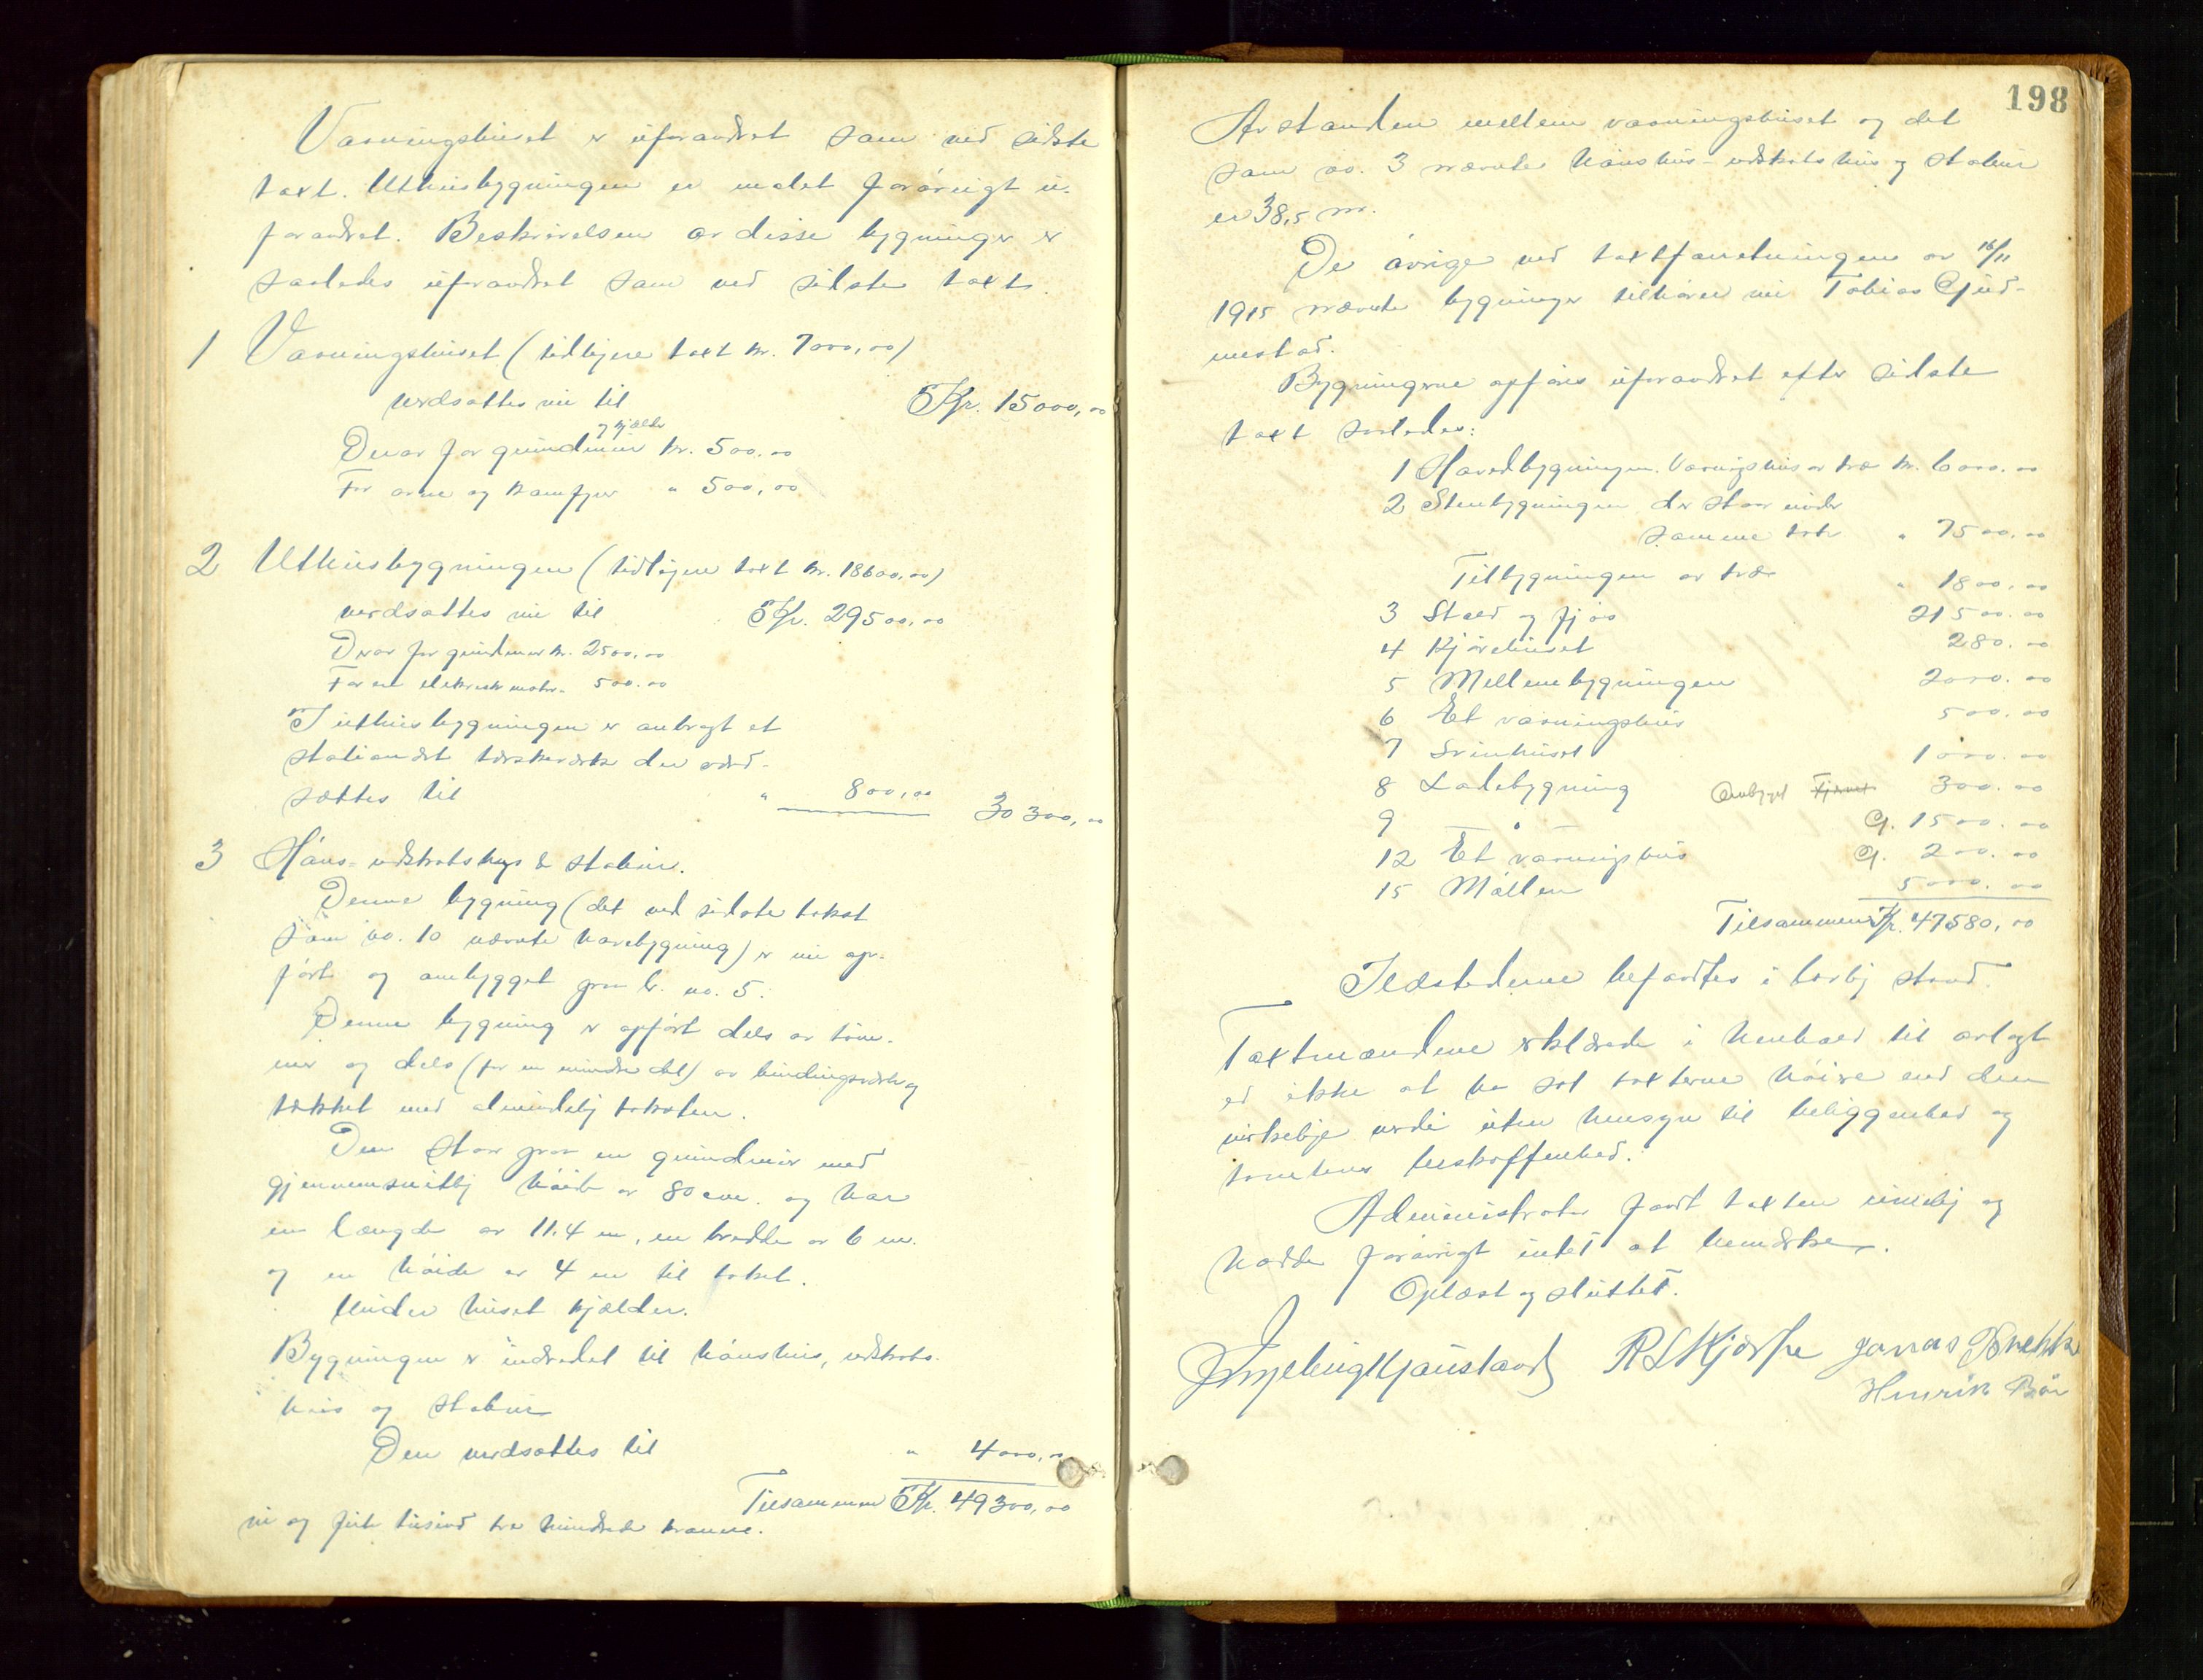 Vaaningshuset er uforandret som ved sidste
taxt. Uthusbygningen er malet forøvrigt u-
forandret. Beskrivelsen av disse bygninger er
saaledes uforandret som ved sidste taxt.
1 Vaaningshuset (tidligere taxt kr. 7000,00)
verdsættes nu til Kr. 15000,00
og kjælder
Derav for grundmur kr. 500.00
For ovne og komfyr " 500,00
2 Uthusbygningen (tidligere taxt kr. 18600,00)
verdsættes nu til Kr. 29500,00
Derav for grundmur kr. 2500,00
For en elektrisk motor " 500.00
I uthusbygningen er anbragt et
stationært tærskeverk der verd-
sættes til " 800,00 30300,00
3 Høns- vedskotshus & stabur.
Denne bygning (det ved sidste takst
som no. 10 nævnte havebygning) er nu op-
ført og ombygget paa b. no. 5.
Denne bygning er opført dels av tøm-
mer og dels (for en mindre del) av bindingsverk og
tækket med almindelig taksten.
Den staar paa en grundmur med
gjennemsnitlig høide av 80 cm. og har
en længde av 11.4 m, en bredde av 6 m.
og en høide av 4 m til taket.
Under huset kjælder.
Bygningen er indredet til hønshus, vedskots-
hus og stabur
Den verdsættes til " 4000,00
Tilsammen Kr. 49300,00
ni og førti tusind tre hundrede kroner.
198
Avstanden mellem vaaningshuset og det
som no. 3 nævnte hønshus- vedskotshus og stabur
er 38,5 m.
De øvrige ved taxtforretningen av 16/11
1915 nævnte bygninger tilhører nu Tobias Gud-
mestad.
Bygningerne opføres uforandret efter sidste
taxt saaledes:
1 Hovedbygningen. Vaaningshus av træ kr. 6000.00
2 Stenbygningen der staar under
samme tak " 7500.00
Tilbygningen av træ " 1800,00
3 Stald og fjøs 21500.00
4 Kjørehuset 280.00
5 Mellembygningen 2000.00
6 Et vaaningshus 500.00
7 Svinhuset 1000.00
8 Ladebygning Ombyget Fjernet 300.00
9 — " — G. 1500.00
12 Et vaaningshus G. 200.00
15 Møllen 5000.00
Tilsammen Kr. 47580,00
Ildstederne befandtes i lovlig stand.
Taxtmændene erklærede i henhold til avlagt
ed ikke at ha sat taxterne høiere end den
virkelige verdi uten hensyn til beliggenhed og
tomtens beskaffenhed.
Administrator fandt taxten rimelig og
hadde forøvrigt intet at bemærke.
Oplæst og sluttet.
R L Kjosse Jonas Brekke
Henrik Bøe